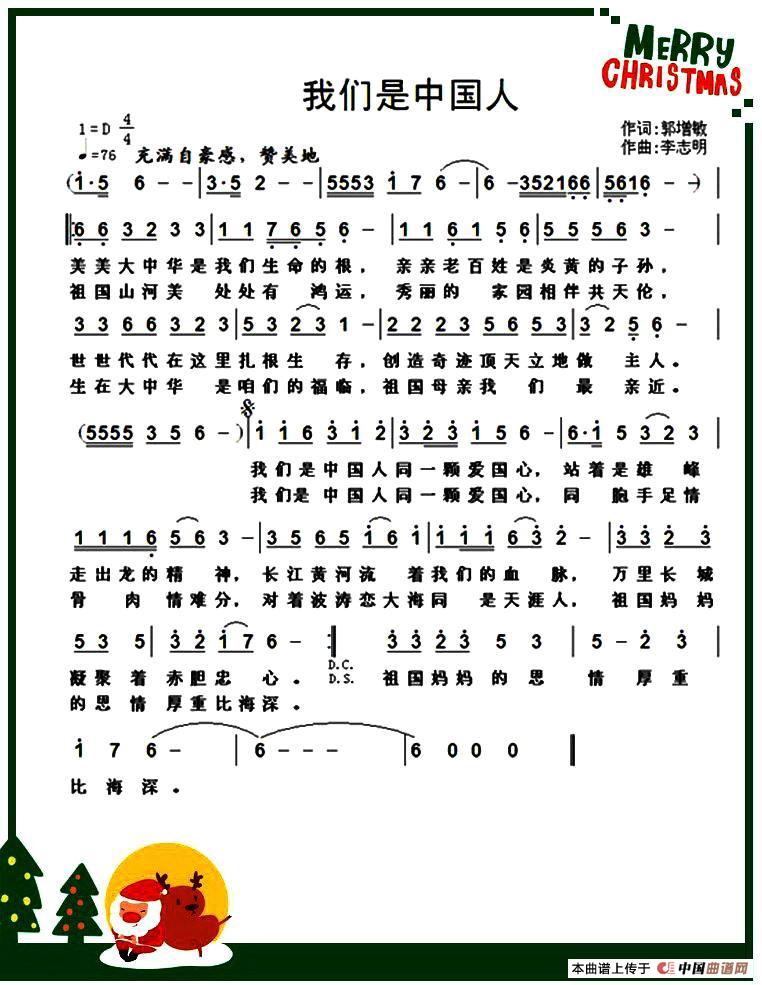 MERRY
CHRISTMAS
我们是中国人
1=D 4/4
作词:郭增敏
♩=76 充满自豪感，赞美地
作曲:李志明
(i·5 6 - -|3·5 2 - -|55553 i 7 6 -|6 -352166|5616 - -)|
‖:66 32 33|11 765 6 -|11 6156|55565 3 -|
美美大中华是我们生命的根，亲亲老百姓是炎黄的子孙，
祖国山河美 处处有 鸿运，秀丽的 家园相伴共天伦，
33 66 323|53 23 1 -|2223 5653|32 5 6 -|
世世代代在这里扎根生 存，创造奇迹顶天立地做 主人。
生在大中华 是咱们的福临，祖国母亲我 们 最 亲近。
(5555 35 6 -)|i i6 3i 2|323 i5 6 -|6·i 5 32|
我们是中国人同一颗爱国心，站着是雄 峰
我们是 中国人同一颗爱国心，同 胞手足情
1116 56 3 -|35 65 i6 i|i i i 63 2 -|33 2 3|
走出龙的精 神，长江黄河流 着我们的血 脉，万里长 城
骨 肉 情难分，对着波涛恋大海同 是天涯人，祖国妈妈
53 5|32 i7 6 - :‖ 33 23 5 3|5 - 2 3|
凝聚 着赤胆忠 心。 D.C. 祖国妈妈的 思 情 厚 重
D.S.
的思 情 厚重比海深。
i 7 6 -|6 - - -|6 0 0 0‖
比 海 深。
本曲谱上传于 中国曲谱网